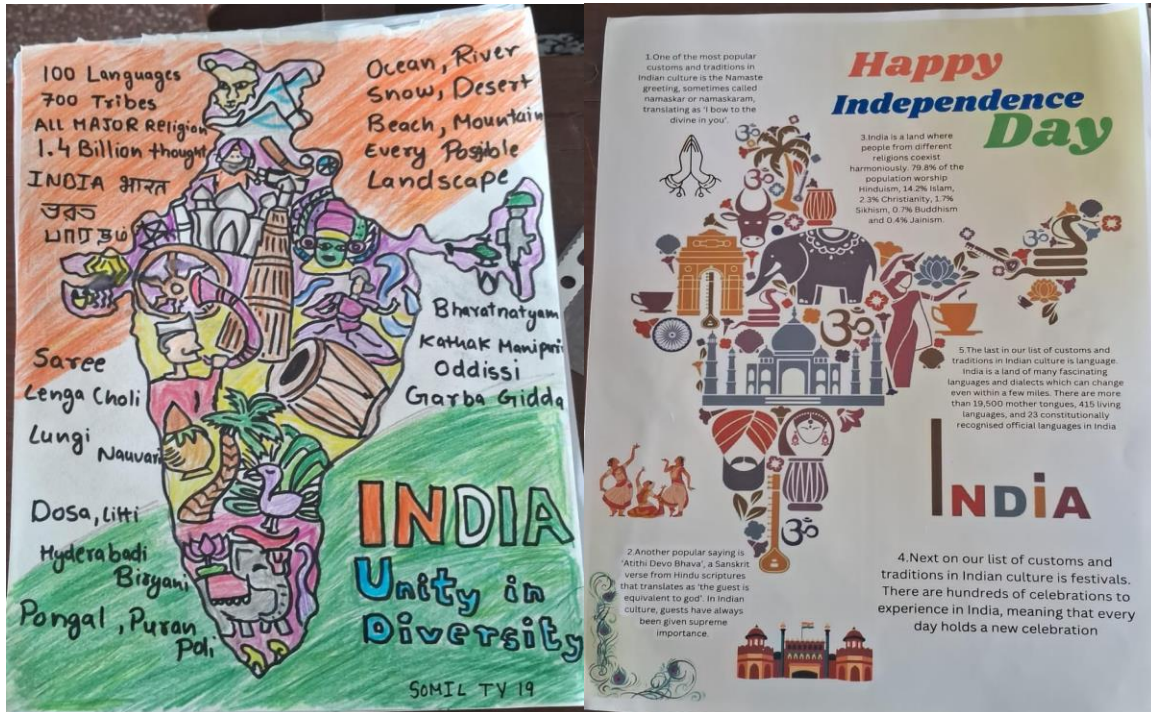 100 Languages
700 Tribes
ALL MAJOR Religion
1.4 Billion thought
INDIA भारत
ভারত
பாரதம்
Ocean, River
Snow, Desert
Beach, Mountain
Every Possible
Landscape
Saree
Lenga Choli
Lungi
Nauvari
Dosa, Litti
Hyderabadi
Biryani
Pongal, Puran
Poli
Bharatnatyam
Kathak Manipuri
Oddissi
Garba Gidda
INDIA
Unity in
Diversity
SOMIL TY 19
Happy
Independence
Day
1.One of the most popular
customs and traditions in
Indian culture is the Namaste
greeting, sometimes called
namaskar or namaskaram,
translating as 'I bow to the
divine in you'.
3.India is a land where
people from different
religions coexist
harmoniously. 79.8% of the
population worship
Hinduism, 14.2% Islam,
2.3% Christianity, 1.7%
Sikhism, 0.7% Buddhism
and 0.4% Jainism.
5.The last in our list of customs and
traditions in Indian culture is language.
India is a land of many fascinating
languages and dialects which can change
even within a few miles. There are more
than 19,500 mother tongues, 415 living
languages, and 23 constitutionally
recognised official languages in India
INDiA
2.Another popular saying is
'Atithi Devo Bhava', a Sanskrit
verse from Hindu scriptures
that translates as 'the guest is
equivalent to god'. In Indian
culture, guests have always
been given supreme
importance.
4.Next on our list of customs and
traditions in Indian culture is festivals.
There are hundreds of celebrations to
experience in India, meaning that every
day holds a new celebration
ॐ
ॐ
ॐ
ॐ
ॐ